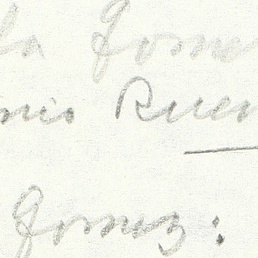 la Gome
nio Ruer
Gomez: